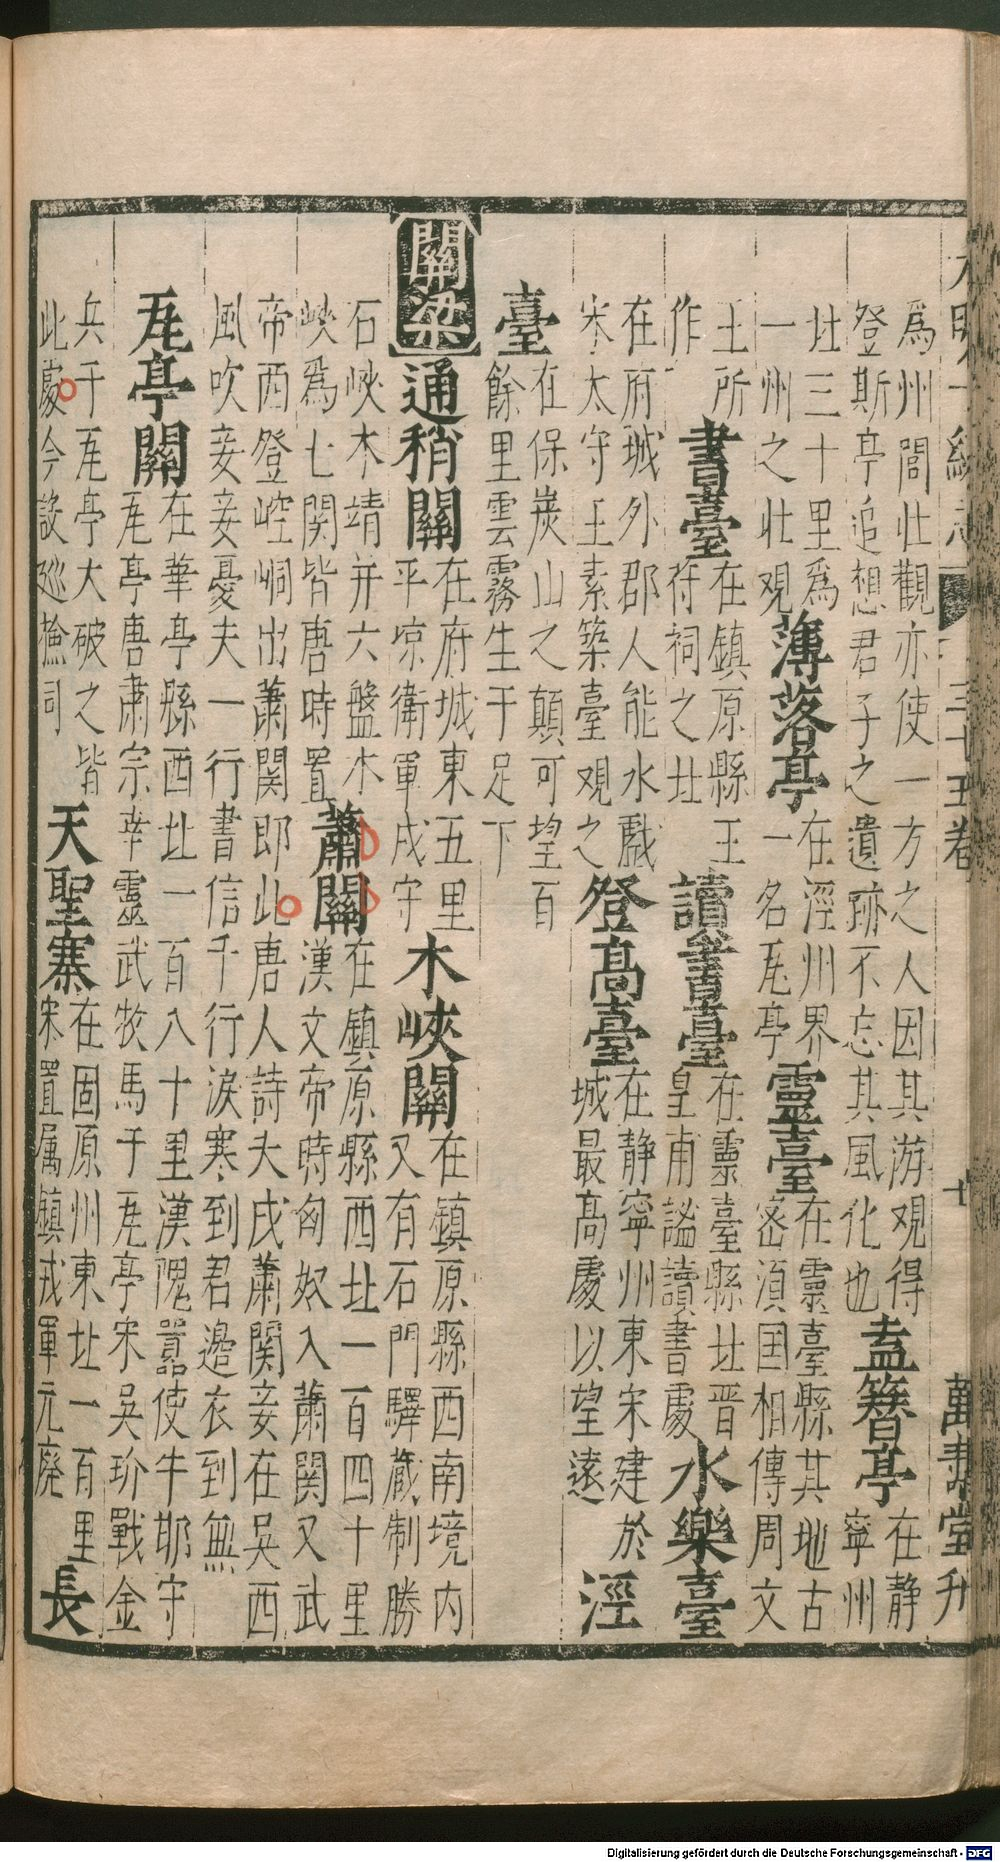 大明一統志 三十五卷 十 萬壽堂刋
為州閭壯觀亦使一方之人因其游观得
登斯亭追想君子之遺跡不忘其風化也
盍簪亭
在静
寧州
北三十里為
一州之壯观
薄落亭
在涇州界
一名瓦亭
靈臺
在靈臺縣其地古
密須国相傳周文
王所
作
書臺
在鎮原縣王
符祠之北
讀書臺
在靈臺縣北晋
皇甫謐讀書處
水樂臺
在府城外郡人能水戲
宋太守王素築臺观之
登髙臺
在静寧州東宋建於
城最髙處以望遠
涇
臺
在保炭山之顛可望百
餘里雲霧生于足下
關梁
通稍關
在府城東五里
平凉衛軍戍守
木峽關
在鎮原縣西南境内
又有石門驛蔵制勝
石峽木靖并六盤木
峽為七関皆唐時置
蕭關
在鎮原縣西北一百四十里
漢文帝時匈奴入蕭関又武
帝西登崆峒出蕭関即此唐人詩夫戍蕭関妾在吳西
風吹妾妾憂夫一行書信千行淚寒到君邉衣到無
瓦亭關
在華亭縣西北一百八十里漢隗囂使牛耶守
瓦亭唐肅宗幸靈武牧馬于瓦亭宋吳玠戰金
兵于瓦亭大破之皆
此處今設廵撿司
天聖寨
在固原州東北一百里
宋置属鎮戎軍元廢
長
Digitalisierung gefördert durch die Deutsche Forschungsgemeinschaft - DFG